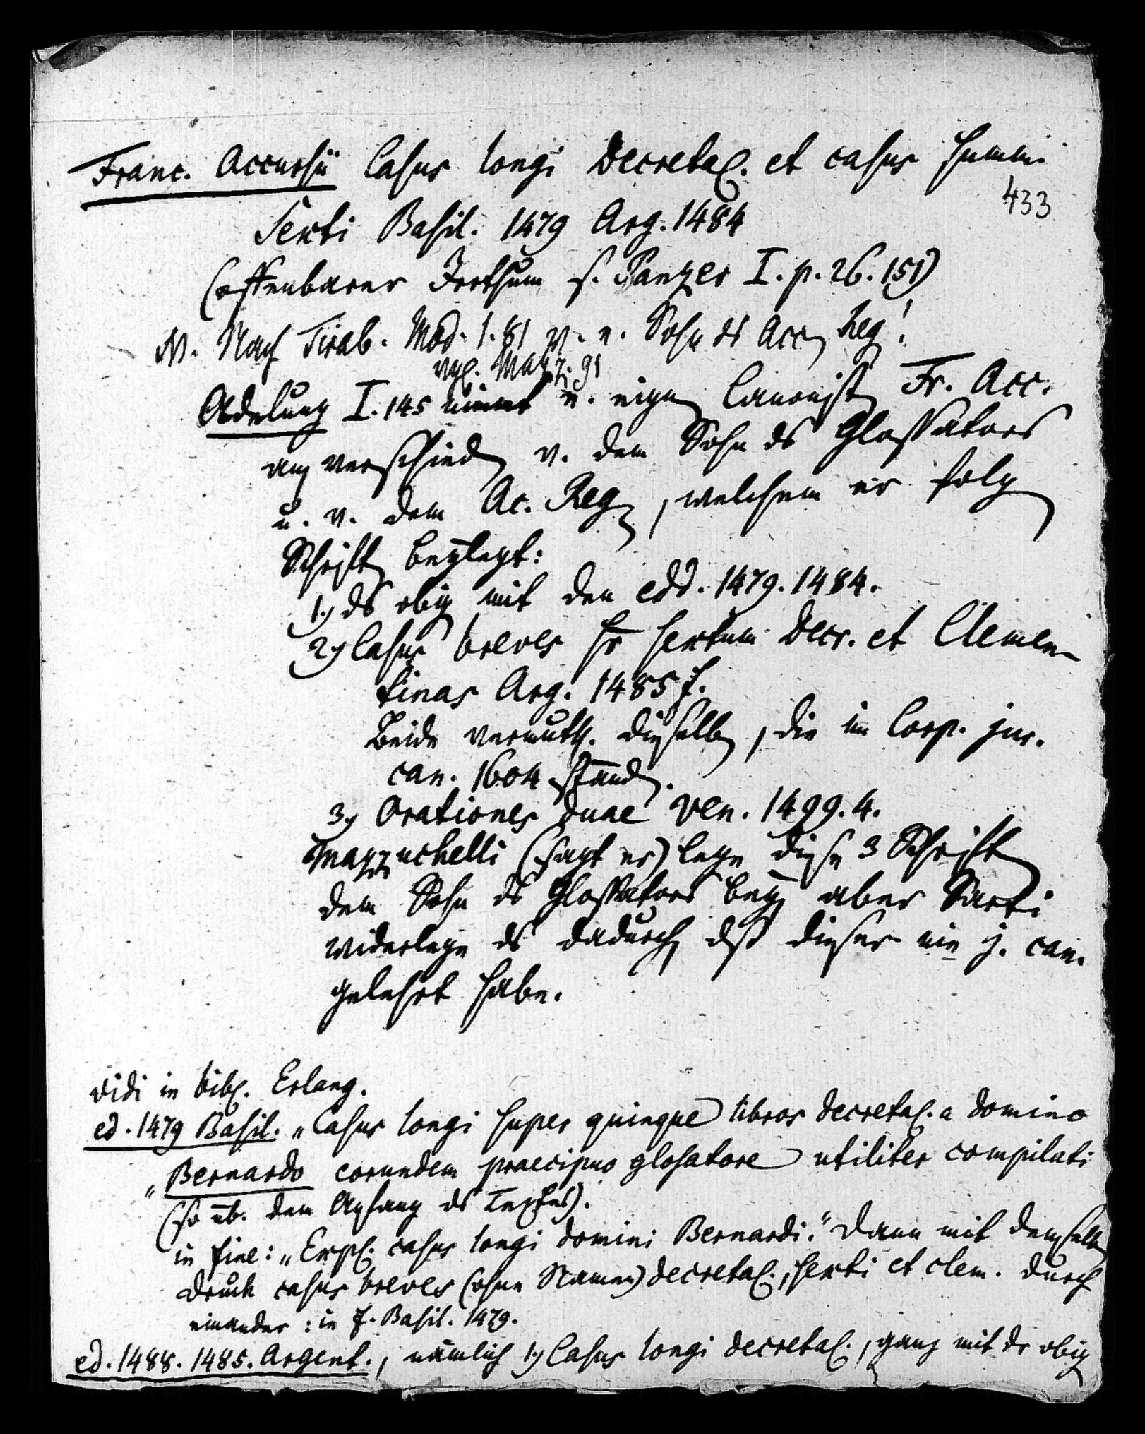 Franc. Accursii Casus longi Decretal. et casus summ.
433
Sexti Basil. 1479 Arg. 1484
(offenbarer Irrthum s. Panzer I. p. 26. 151)
N. Nach Tirab. Mod. 1.81 v. e. Sohn ds Acc. Reg!
vgl. Mazz. 91
Adelung I. 145 nimmt e. eignen Canonisten Fr. Acc.
an verschieden v. dem Sohn ds Glossators
u. v. dem Ac. Reg., welchem er folg
Schriften beylegt:
1.) ds obige mit den edd. 1479. 1484.
2.) Casus breves sr sextum Decr. et Clemen-
tinas Arg. 1485 f.
Beide vermuthl. dieselben, die im Corp. jur.
can. 1604 standen.
3.) Orationes duae Ven. 1499. 4.
Mazzuchelli (sagt er) lege diese 3 Schriften
dem Sohn ds Glossators bey, aber Sarti
widerlege ds dadurch dß dieser nie j. can.
gelehrt habe.
vidi in bibl. Erlang.
ed. 1479 Basil. „Casus longi super quinque libros decretal. a domino
„Bernardo eorundem praecipuo glosatore utiliter compilati
(so üb. dem Anfang ds Textes).
in fine: „Expl. casus longi domini Bernardi.“ Dann mit demselben
Druck casus breves (ohne Namen) decretal., sexti et clem. durch
einander: in f. Basil. 1479.
ed. 1488. 1485. Argent., nämlich 1.) Casus longi decretal., ganz mit dr obig